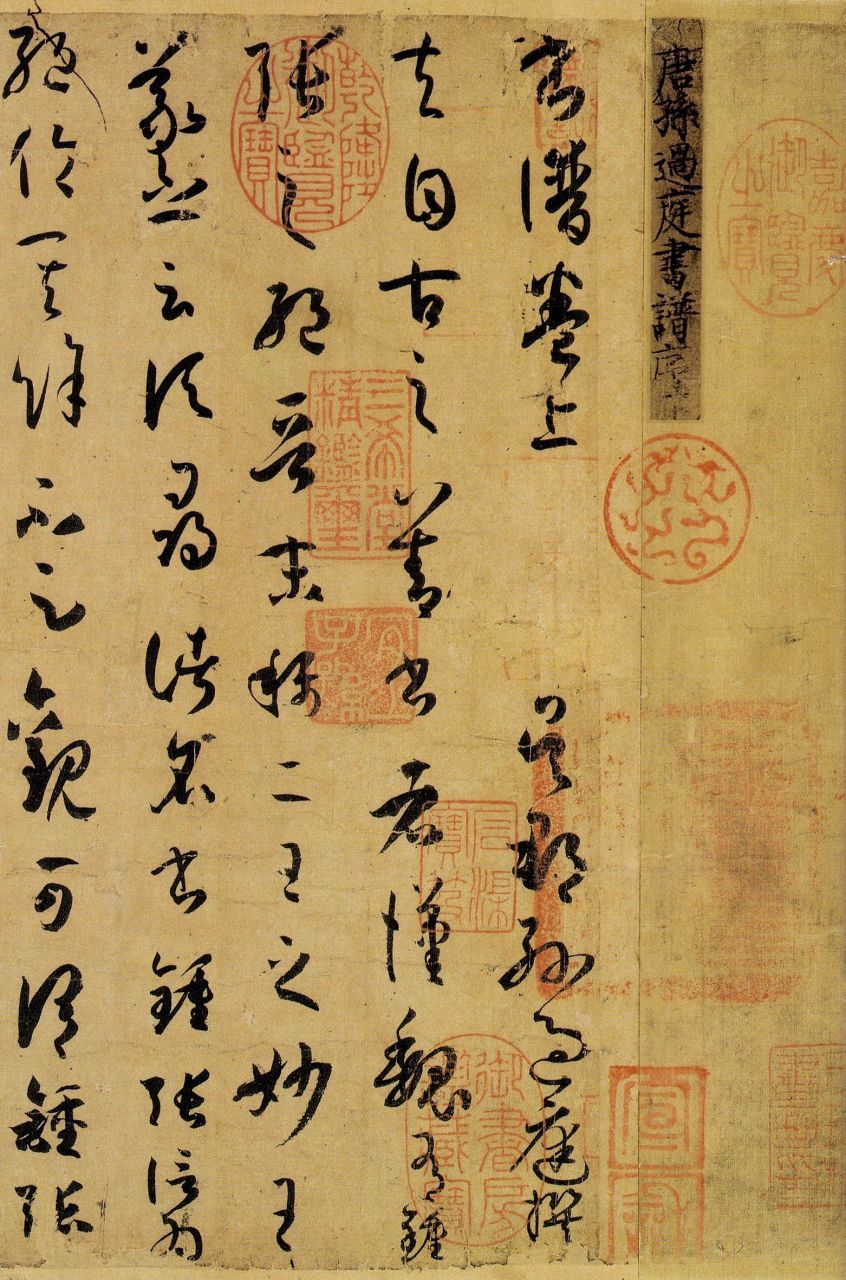 唐孫過庭書譜序
書譜卷上
吳郡孫過庭撰
夫自古之善書者漢魏有鍾
張之絕晉末稱二王之妙王
羲之云頃尋諸名書鍾張信為
絕倫其餘不足觀可謂鍾張
嘉慶御覽之寶
乾隆御覽之寶
三希堂精鑑璽
宜子孫
石渠寶笈
御書房鑑藏寶
宣和